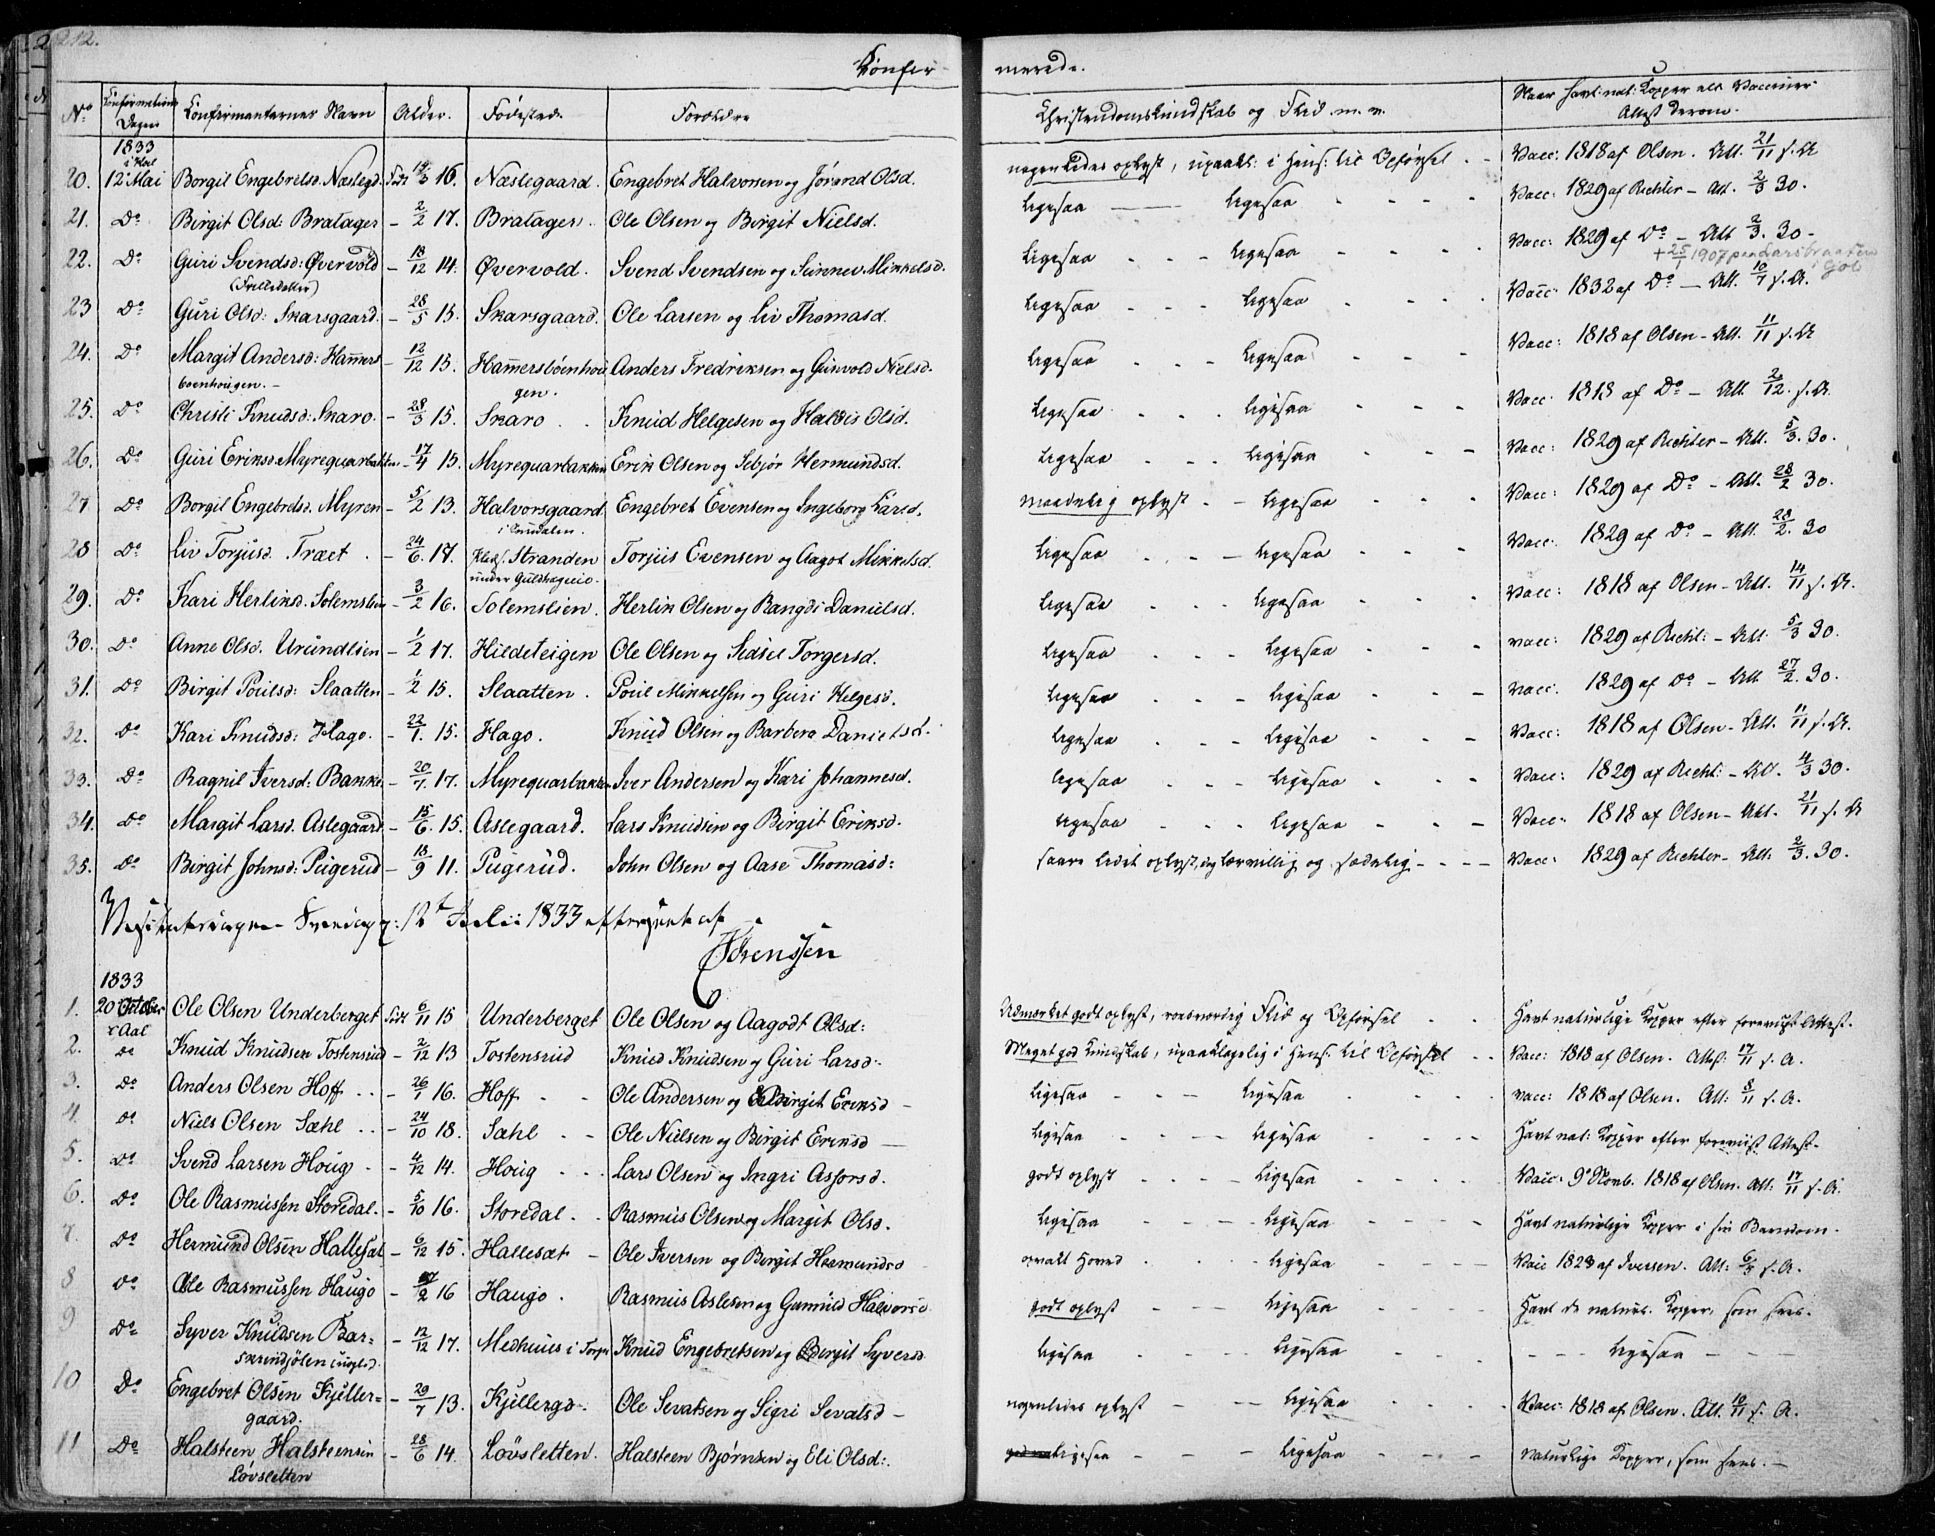 212.
Confir- merede.
No Confirmations Dagen Confirmanternes Navn Alder. Fødested. Forældre Christendomskundskab og Flid m. v. Naar havt nat: Kopper ell. Vaccineret Attest derom.
1833
i Hol
20. 12 Mai Borgil Engebretsd. Næslegd. Født 14/3 16. Næslegaard. Engebret Halvorsen og Jørend Olsd. nogenledes oplyst, upaakl: i Hens: til Opførsel - - Vacc: 1818 af Olsen. Att. 21/11 s. A
21. Do Birgit Olsd: Bratager - 2/2 17. Bratager. Ole Olsen og Birgit Nielsd. Ligesaa - Ligesaa - - - Vacc: 1829 af Richter - Att. 2/3 30.
22. Do Guri Svendsd: Øvervold - 18/12 14. Øvervold. Svend Svendsen og Sünnev Mikkelsd. Ligesaa - - - Ligesaa - - - Vacc: 1829 af Do - Att 2/3. 30 -
+ 25/1 1907 paa Larsbraaten i Gol
23 Do Guri Olsd: Skarsgaard. - 28/5 15. Skarsgaard. Ole Larsen og Liv Thomasd. Ligesaa - - - Ligesaa - - - Vacc: 1832 af Do - Att. 10/7 s. A.
24. Do Margit Andersd: Hammers - 12/12 15. Hammersbøenhou Anders Fredriksen og Gunvold Nielsd. Ligesaa - - Ligesaa - - - Vacc: 1818 af Olsen - Att. 11/11 s. A
boenhougen. - gen.
25. Do Christi Knudsd: Skaro. - 28/3 15. Skaro . . Knud Helgesen og Haldis Olsd. Ligesaa . . . Ligesaa - - - Vacc: 1818 af Do - Att. 2/12. s. A.
26. Do Guri Eriksd Myrequarbakken - 17/4 15. Myrequarbakken Erik Olsen og Sebjør Hermundsd. Ligesaa - - - Ligesaa - - - Vacc: 1829 af Richter - Att. 5/3. 30.
27 Do Borgil Engebretsd. Myren - 5/2 13. Halvorsgaard Engebret Evensen og Ingeborg Larsd. maadelig oplyst - - Ligesaa - - - Vacc: 1829 af Do - Att. 28/2 30.
28 Do Liv Torjusd. Træet . - 24/6. 17. Stranden Torjus Evensen og Aagot Mikkelsd. Ligesaa - - - Ligesaa - - - Vacc: 1829 af Do - Att. 28/2. 30
under Guldhageie.
29. Do Kari Herliksd. Solemslien - 3/2 16. Solemslien. Herlik Olsen og Rangdi Danielsd. Ligesaa - - - Ligesaa - - - Vacc: 1818 af Olsen - Att. 14/11 s. A.
30. Do Anne Olsd. Urundlien - 1/2 17. Hildeteigen Ole Olsen og Sidsel Torgersd. Ligesaa - - - Ligesaa - - - vacc: 1829 af Richt: - Att. 5/3 30.
31. Do Birgit Poulsd: Slaatten - 1/2 15. Slaatten . Poul Mikkelsen og Guri Helgesd. Ligesaa - - - Ligesaa - - - vacc: 1829 af Do - Att. 27/2. 30.
32. Do Kari Knudsd: Hago. - 22/1. 15. Hago. Knud Olsen og Barbero Danielsd. Ligesaa - - - Ligesaa - - - Vacc: 1818 af Olsen - Att. 11/11 s. A.
33. Do Ragnil Iversd: Bakke - 20/7. 17. Myrequarbakken Iver Andersen og Kari Johannesd. Ligesaa - - - Ligesaa - - - Vacc: 1829 af Richt: - Att. 4/3 30.
34. Do Margit Larsd. Aslegaard - 15/6. 15. Aslegaard. Lars Knudsen og Birgit Eriksd. Ligesaa - - - Ligesaa - - - Vacc: 1818 af Olsen - Att. 21/11 s. A
35. Do Birgit Johnsd: Pugerud - 18/9 11. Pugerud. John Olsen og Aase Thomasd: saare lidet oplyst, og lærvillig og sædelig - - - - Vacc: 1829 af Richter - Att: 2/3. 30.
Fredag 12t Julii 1833 efterseet af
Sørenssen
1833
1. 20 October Ole Olsen Underberget Født 6/11 15 Underberget Ole Olsen og Aagodt Olsd: Udmærket godt oplyst, roesværdig Flid og Opførsel - - Havt naturlige Kopper efter foreviist Attest.
i Aal
2. Do Knud Knudsen Tostensrud - 2/12 13 Tostensrud Knud Knudsen og Guri Larsd: Meget god Kundskab, upaaklagelig i Hens: til Opførsel - - Vacc: 1818 af Olsen. Attst: 17/11 s. A.
3. Do Anders Olsen Hoff . . - 26/1 16. Hoff - - Ole Andersen og Birgit Eriksd - Ligesaa - - - Ligesaa - - - vacc: 1818 af Olsen. Att: 8/11 s. A.
4. Do Niels Olsen Sæhl . . - 24/10 18. Sæhl - - Ole Nielsen og Birgit Eriksd - Ligesaa - - - Ligesaa - - - Havt nat: Kopper efter foreviist Attest -
5. Do Svend Larsen Houg - - 4/12 14. Houg - - - Lars Olsen og Ingri Asjorsd. godt oplyst - - - Ligesaa - - - Vacc: 9de Novb. 1818 af Olsen. Att: 17/11 s. A.
6. Do Ole Rasmussen Storedal. - 5/10 16. Storedal - - Rasmus Olsen og Margit Olsd. Ligesaa - - - Ligesaa - - - Havt naturlige Kopper i sin Barndom.
7. Do Hermund Olsen Hallesæt - 6/12 15. Hallesæt - Ole Iversen og Birgit Hermundsd Hoved . - - Ligesaa - - - Vacc 1823 af Iversen. Att: 6/3 s. A.
8 Do Ole Rasmussen Haugo - /2 16 Haugo . Rasmus Aslesen og Gunnild Halvorsd godt oplyst - - - Ligesaa - - - Havt de naturl. Kopper, som sees.
9 Do Syver Knudsen Bar= - 12/12 17. Medhuus i Torpe Knud Engebretsen og Birgit Syversd Ligesaa - - - Ligesaa - - - - - - Ligesaa - - -
skrindjølen
10 Do Engebret Olsen Kjeller= - 29/7 13. Kjellergd. Ole Sevatsen og Sigri Sevatsd - nogenledes oplyst - - Ligesaa - - - Vacc: 1818 af Olsen. Att. 10/11 s. A.
gaard.
11 Do Halsteen Halsteensen - 28/6 14. Løvsletten. Halsteen Bjørnsen og Eli Olsd:. Ligesaa - - - Ligesaa - - - Naturlige Kopper, som sees. -
Løvsletten